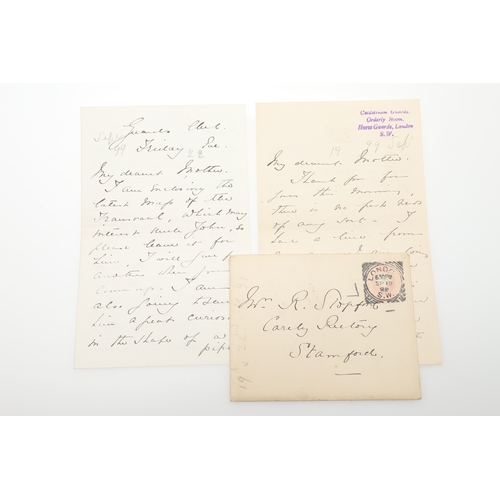 Guards Club.
Friday
My dearest Mother.
I am enclosing the
latest map of the
Transvaal, which may
interest Uncle John, so
please leave it for
him, I will give you
another when you
come up. I am
also going to send
him a great curiosity
in the shape of a
pipe
Coldstream Guards.
Orderly Room.
Horse Guards, London
S.W.
19 99 Sep
My dearest Mother.
Thank you for
yours this morning,
there is no fresh news
of any sort. I
had a line from
LONDON
S.W.
SP 19
99
Mrs. R. Stopford
Careby Rectory
Stamford.